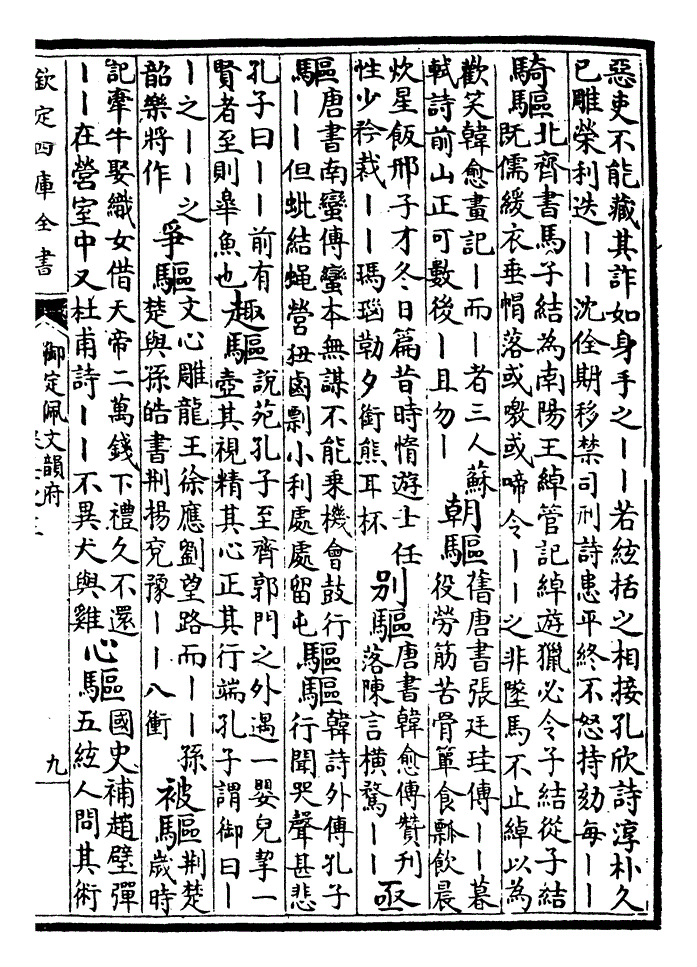 惡吏不能藏其詐如身手之丨丨若絃括之相接孔欣詩淳朴久
已雕榮利迭丨丨沈佺期移禁司刑詩患平終不怒持劾每丨丨
騎驅
北齊書馬子結為南陽王綽管記綽遊獵必令子結從子結
既儒緩衣垂帽落或噭或啼令丨丨之非墜馬不止綽以為
歡笑韓愈畫記丨而丨者三人蘇
軾詩前山正可數後丨且勿丨
朝驅
舊唐書張廷珪傳丨丨暮
役勞筋苦骨簞食瓢飲晨
炊星飯邢子才冬日篇昔時惰遊士任
性少矜裁丨丨瑪瑙勒夕銜熊耳杯
別驅
唐書韓愈傳贊刋
落陳言橫騖丨丨
亟
驅
唐書南蠻傳蠻本無謀不能乘機會鼓行
丨丨但蚍結蠅營扭鹵剽小利處處留屯
驅驅
韓詩外傳孔子
行聞哭聲甚悲
孔子曰丨丨前有
賢者至則臯魚也
趣驅
說苑孔子至齊郭門之外遇一嬰兒挈一
壺其視精其心正其行端孔子謂御曰丨
丨之丨丨之
韶樂將作
爭驅
文心雕龍王徐應劉望路而丨丨孫
楚與孫皓書荆揚兖豫丨丨八衝
被驅
荆楚
歲時
記牽牛娶織女借天帝二萬錢下禮久不還
丨丨在營室中又杜甫詩丨丨不異犬與雞
心驅
國史補趙璧彈
五絃人問其術
欽定四庫全書
御定佩文韻府
九